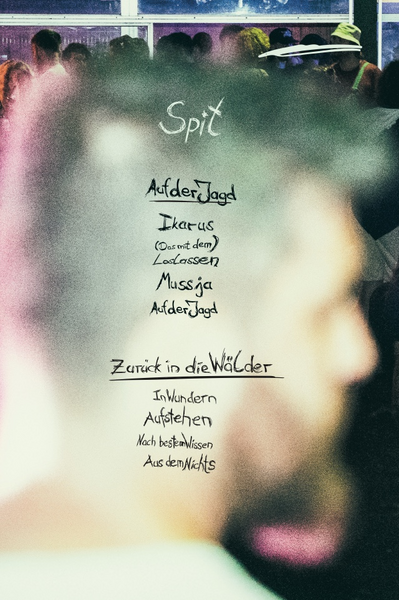 Spit
Auf der Jagd
Ikarus
(Das mit dem)
Loslassen
Muss ja
Auf der Jagd
Zurück in die Wälder
In Wundern
Aufstehen
Nach bestem Wissen
Aus dem Nichts